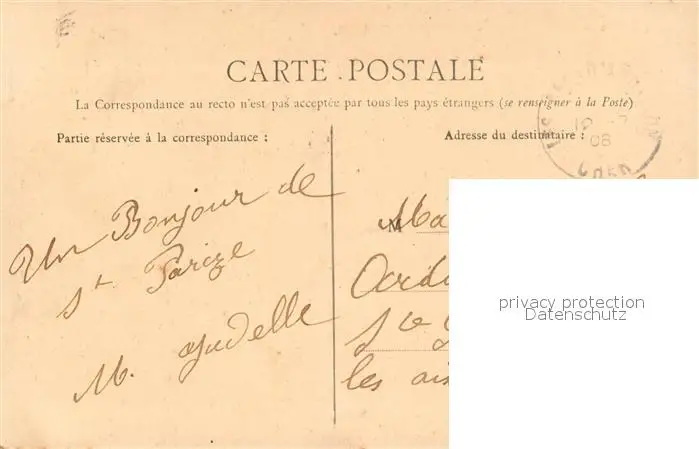 CARTE POSTALE
La Correspondance au recto n'est pas acceptée par tous les pays étrangers (se renseigner à la Poste)
Partie réservée à la correspondance :
Adresse du destinataire :
CHER
08
Un Bonjour de
St Parize
M.
M
Ma
Ste
les
privacy protection
Datenschutz